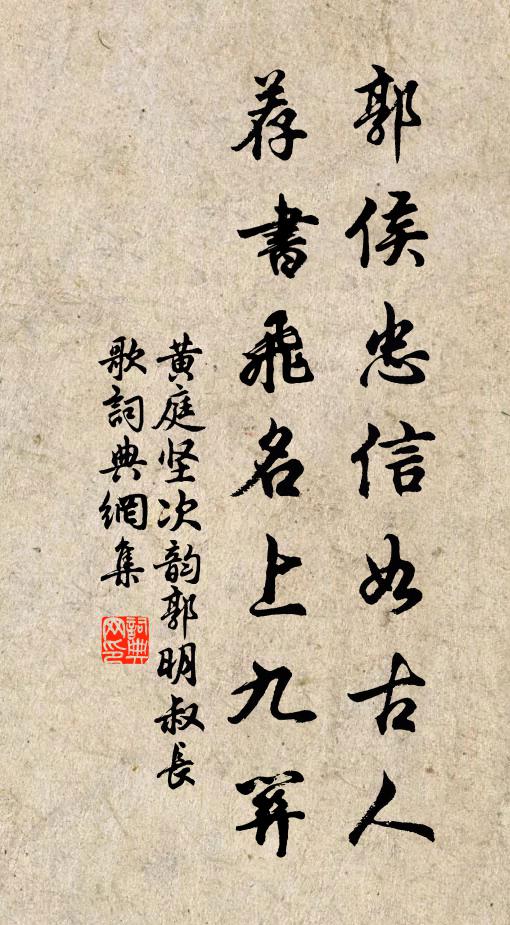 郭侯忠信如古人
荐書飛名上九關
黄庭坚次韵郭明叔長
歌詞典網集
詞典
网印